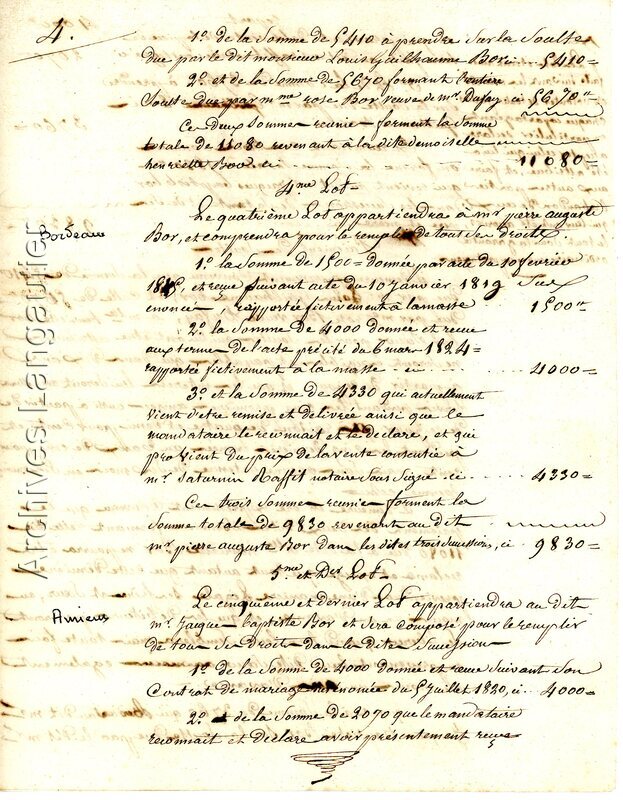 4.
1º. de la Somme de 5410 à prendre Sur la Soulte
due par le dit monsieur Louis Guilhaume Bor ci 5410=
2º. et de la Somme de 5670 formant l'entière
Soulte due par mme rose Bor veuve de mr. Dufay, ci 5670"
Ces deux Sommes reunies forment la Somme
totale de 11080 revenant à la dite demoiselle
henriette Bor ci 11080=
4me Lot=
Bordeaux
Le quatrième Lot appartiendra à mr pierre auguste
Bor, et comprendra pour le remplir de tout Ses droits.
1º. la Somme de 1500= donnée par acte du 10 fevrier
et reçue Suivant acte du 10 Janvier 1819 Sus
enoncés, rapportée fictivement à la masse 1500"
2º. la Somme de 4000 donnée et recue
aux termes de l'acte précité du 6 mars 1824=
rapportée fictivement à la masse ci 4000=
3º. et la Somme de 4330 qui actuellement
vient d'etre remise et delivrée ainsi que le
mandataire le reconnait et le declare, et qui
provient du prix de la vente consentie à
mr. Saturnin Raffit notaire Sous Signé ci 4330=
Ces trois Sommes reunies forment la
Somme totale de 9830 revenant au dit
mr. pierre auguste Bor dans les dites trois Successions, ci 9830=
5me et Der Lot=
Amiens
Le cinquieme et dernier Lot appartiendra au dit
mr. Jacques baptiste Bor et Sera composé pour le remplir
de tous Ses droits dans les dites Succession
1º. de la Somme de 4000 donnée et recue Suivant Son
Contrat de mariage du 5 Juillet 1820, ci 4000=
2º. et de la Somme de 2070 que le mandataire
reconnait et declare avoir présentement reçue
Archives Langautier